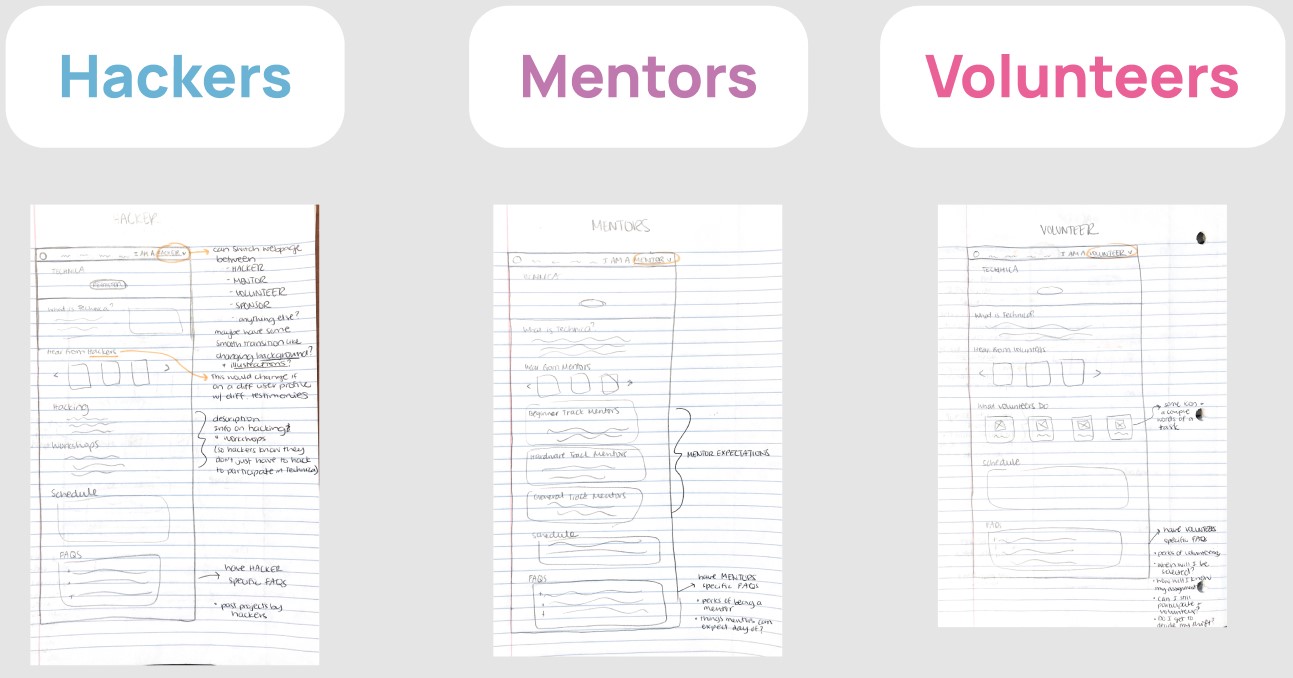 Hackers
Mentors
Volunteers
HACKER
I AM A HACKER
TECHNICA
What is Technica?
Hear from Hackers
Hacking
Workshops
Schedule
FAQS
can switch webpage
between
- HACKER
- MENTOR
- VOLUNTEER
- SPONSOR
- anything else?
maybe have some
smooth transition like
changing background?
+ illustrations?
This would change if
on a diff user profile
w/ diff. testimonies
description
info on hacking
+ workshops
(so hackers know they
don't just have to hack
to participate in Technica)
have HACKER
specific FAQS
• past projects by
hackers
MENTORS
I AM A MENTOR
TECHNICA
What is Technica?
Hear from Mentors
Beginner Track Mentors
Hardware Track Mentors
General Track Mentors
MENTOR EXPECTATIONS
Schedule
FAQS
have MENTORS
specific FAQS
• perks of being a
mentor
• things mentors can
expect day of?
VOLUNTEER
I AM A VOLUNTEER
TECHNICA
What is Technica?
Hear from Volunteers
What Volunteers Do
some icon +
a couple
words of a
task
Schedule
FAQS
have VOLUNTEERS
specific FAQs
• perks of volunteering
• when will I be
selected?
• how will I know
my assignment
• can I still
participate &
volunteer?
• DO I get to
decide my shift?